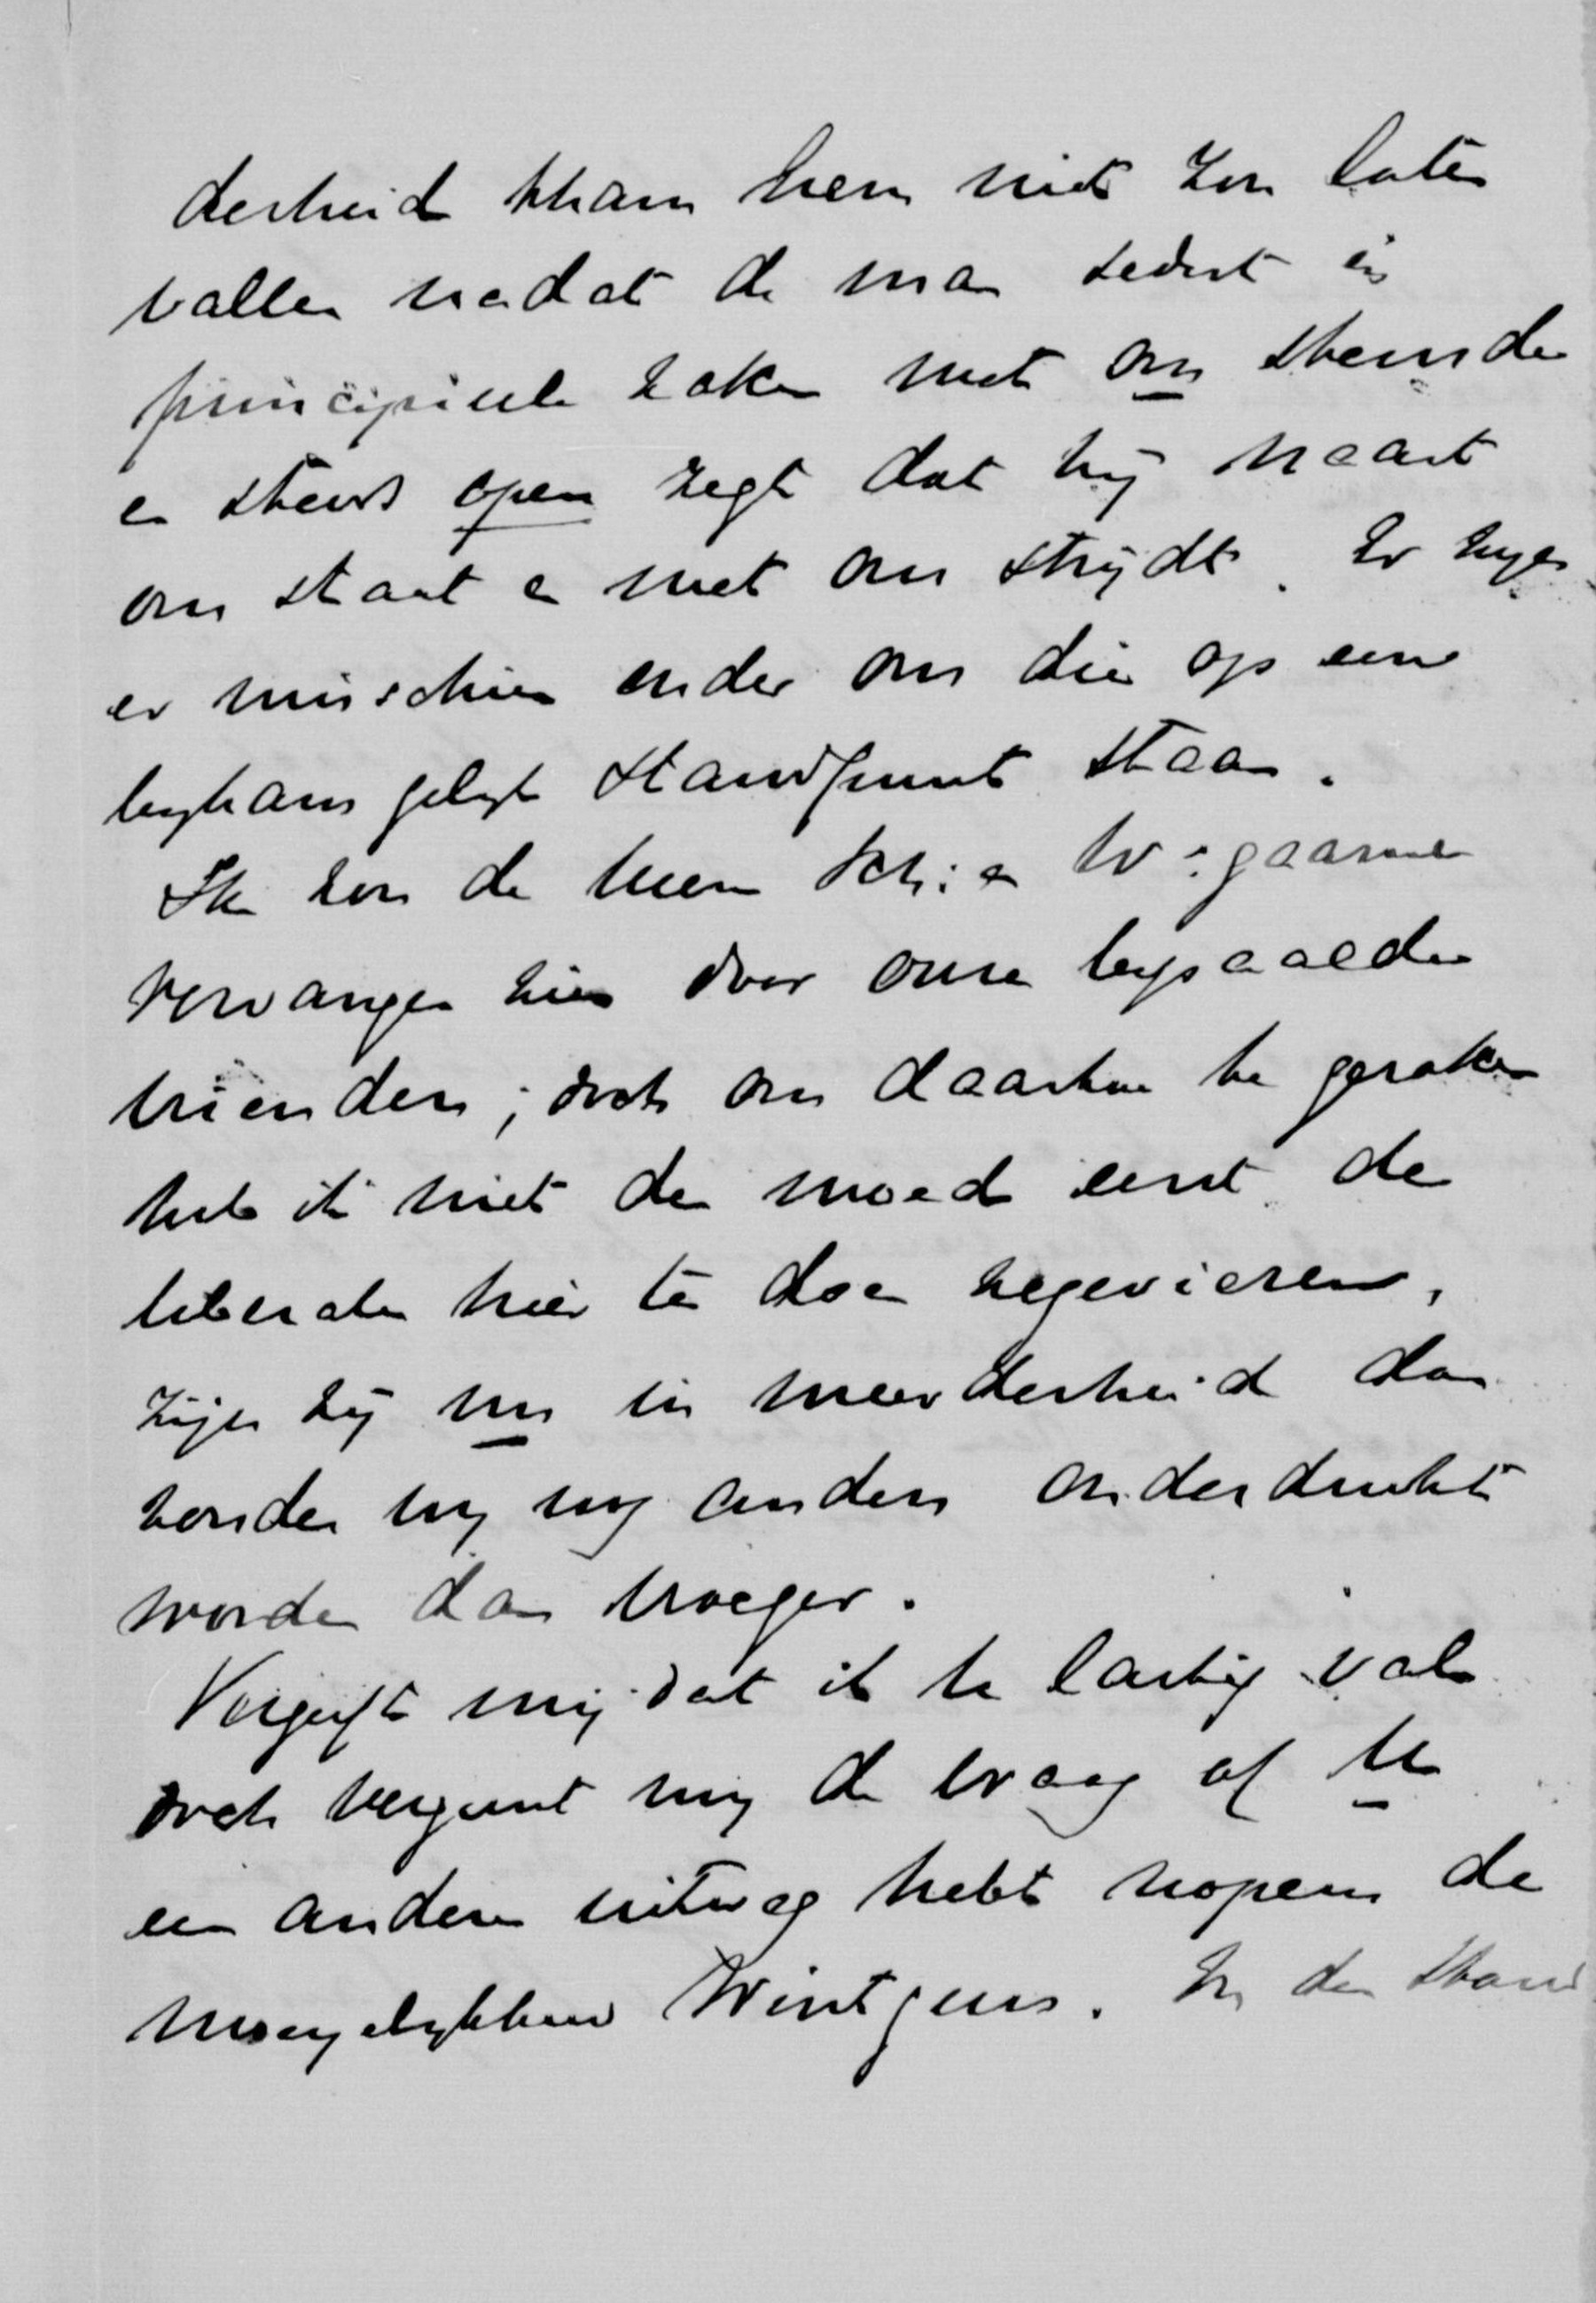 derheid thans hem niet zou laten
vallen nadat de man sedert in
principieele zaken met ons stemde
en steeds open zegt dat hij naast
ons staat en met ons strijdt. Er zijn
er misschien onder ons die op een
byhans gelijk standpunt staan.
Ik zou de heeren Sch: en W: gaarne
vervangen zien door onze bepaalde
vrienden; doch om daartoe te geraken
heb ik niet den moed eerst de
liberalen hier te doen zegevieren,
zijn zij nu in meerderheid dan
zouden wy nog anders onderdrukt
worden dan vroeger.
Vergeeft mij dat ik te lastig val
doch vergunt my de vraag of U
een anderen uitweg hebt nopens de
moeyelykheid Wintgens. In den Haag